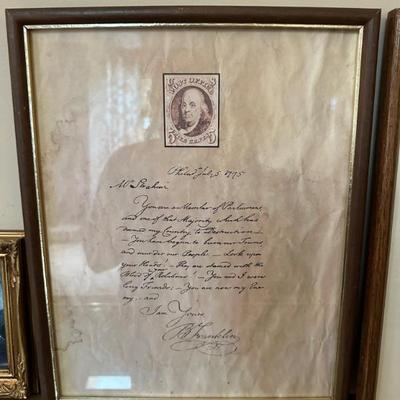 POST OFFICE
FIVE CENTS
Philada July 5. 1775
Mr Strahan
You are a Member of Parliament,
and one of that Majority which has
doomed my Country to Destruction. —
— You have begun to burn our Towns,
and murder our People. — Look upon
your Hands! — They are stained with the
Blood of your Relations! — You and I were
long Friends: — You are now my Ene-
my, — and
I am Yours
B Franklin